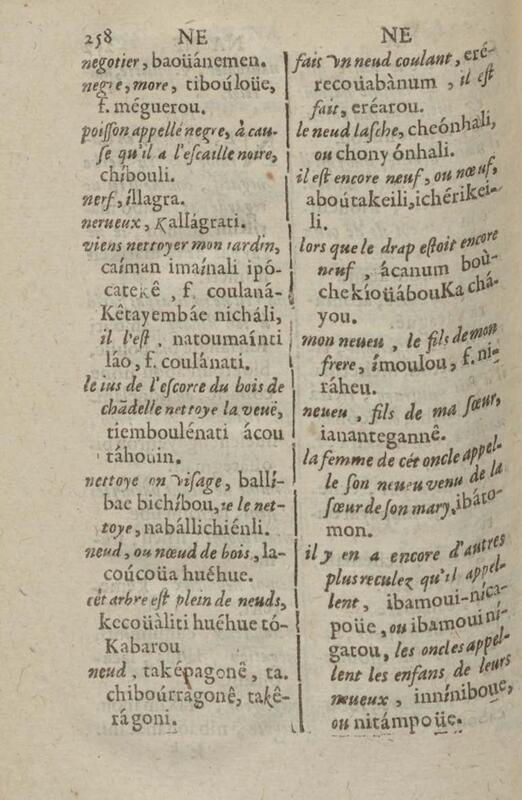 258 NE
negotier, baoüánemen.
negre, more, tiboúloüe,
f. méguerou.
poisson appellé negre, à cau-
se qu'il a l'escaille noire,
chíbouli.
nerf, íllagra.
nerueux, Kallágrati.
viens nettoyer mon iardin,
caíman imaínali ipó-
catekê, f. coulaná-
Kêtayembáe nicháli,
il l'est, natoumaínti
láo, f. coulánati.
le ius de l'escorce du bois de
chãdelle nettoye la veuë,
tiemboulénati ácou
táhouin.
nettoye on visage, ballí-
bae bichíbou, ie le net-
toye, nabállichiénli.
neud, ou nœud de bois, la-
coúcoüa huéhue.
cét arbre est plein de neuds,
kecoüàliti huéhue tó-
Kabarou
neud, taképagonê, ta.
chibourragonê, takê-
rágoni.
NE
fais vn neud coulant, eré-
recoüabànum, il est
fait, eréarou.
le neud lasche, cheónhali,
ou chony ónhali.
il est encore neuf, ou nœuf,
aboútakeili, ichérikei-
li.
lors que le drap estoit encore
neuf, ácanum boù-
chekíoüábouKa chá-
you.
mon neueu, le fils de mon
frere, ímoulou, f. ni-
ráheu.
neueu, fils de ma sœur,
ianantegannê.
la femme de cét oncle appel-
le son neueu venu de la
sœur de son mary, ibáto-
mon.
il y en a encore d'autres
plus reculez qu'il appel-
lent, ibamoui-níca-
poüe, ou ibamouiní-
gatou, les oncles appel-
lent les enfans de leurs
neueux, inníniboue,
ou nitámpoüe.